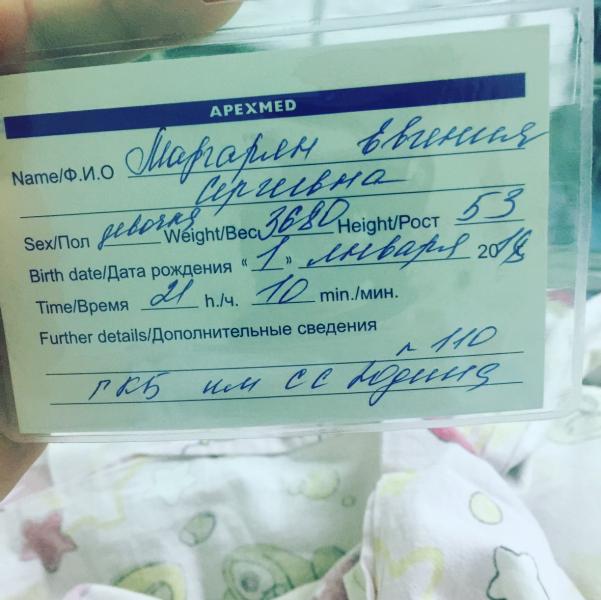 APEXMED
Name/Ф.И.О Маргарян Евгения
Сергеевна
Sex/Пол девочка Weight/Вес 3680 Height/Рост 53
Birth date/Дата рождения « 1 » января 2018
Time/Время 21 h./ч. 10 min./мин.
Further details/Дополнительные сведения
110
ГКБ им С С Юдина